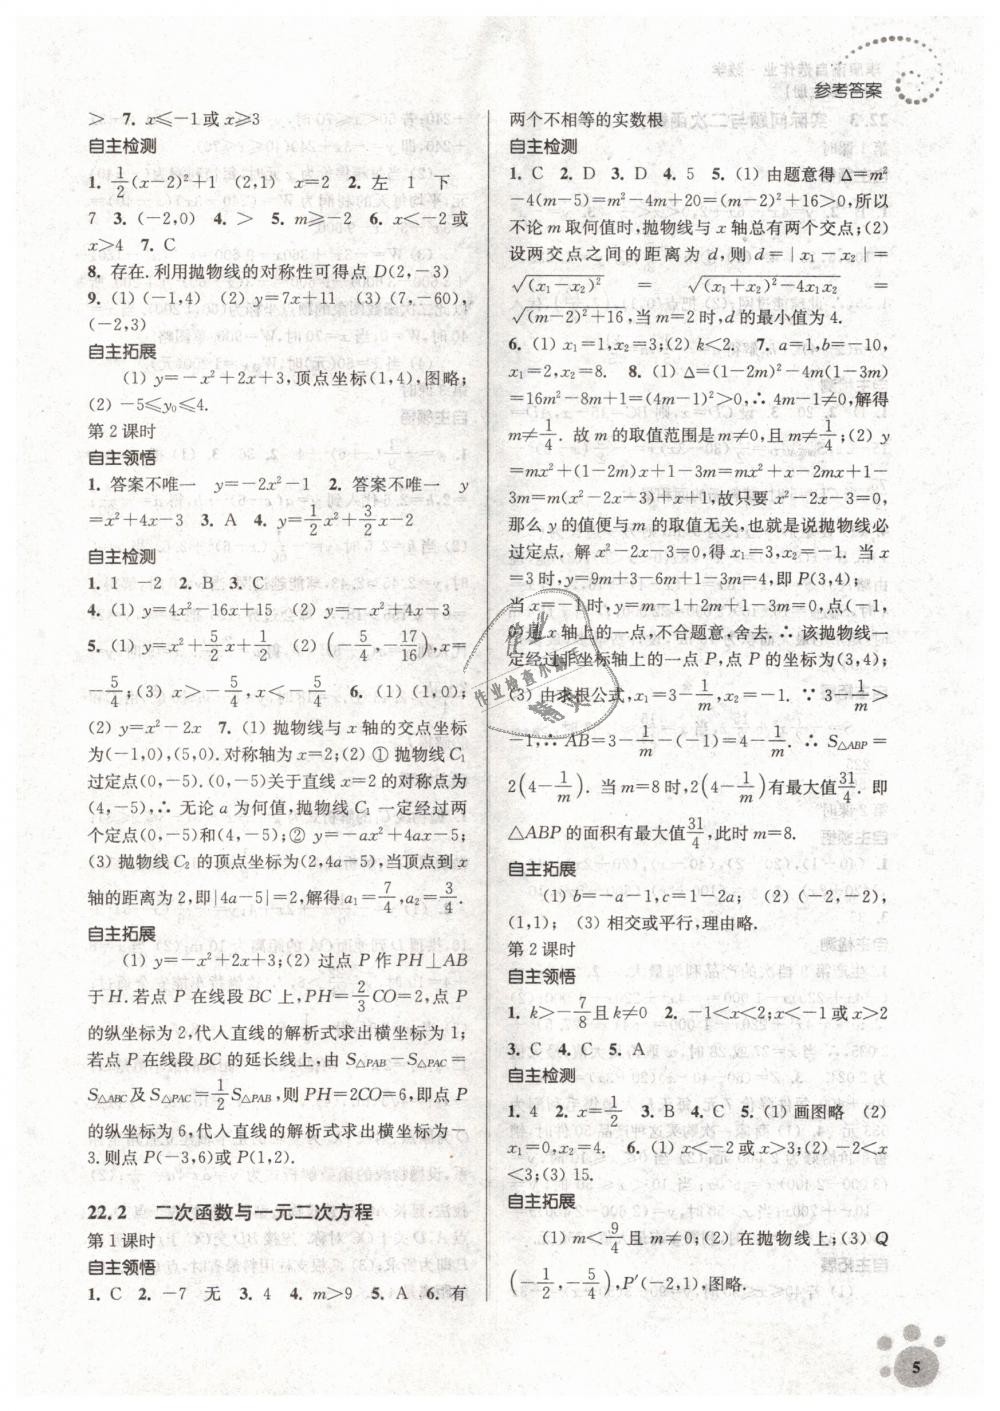 参考答案
>　7. x≤－1或x≥3
自主检测
1. 1/2(x－2)²＋1　(2,1)　x＝2　2. 左　1　下
7　3. (－2,0)　4. >　5. m≥－2　6. x<－2或
x>4　7. C
8. 存在. 利用抛物线的对称性可得点 D(2,－3)
9. (1) (－1,4)　(2) y＝7x＋11　(3) (7,－60),
(－2,3)
自主拓展
(1) y＝－x²＋2x＋3,顶点坐标(1,4),图略;
(2) －5≤y₀≤4.
第 2 课时
自主领悟
1. 答案不唯一　y＝－2x²－1　2. 答案不唯一　y
＝x²＋4x－3　3. A　4. y＝1/2x²＋3/2x－2
自主检测
1. 1　－2　2. B　3. C
4. (1) y＝4x²－16x＋15　(2) y＝－x²＋4x－3
5. (1) y＝x²＋5/2x＋1/2　(2) (－5/4,－17/16),x＝
－5/4;(3) x>－5/4,x<－5/4　6. (1) (1,0);
(2) y＝x²－2x　7. (1) 抛物线与 x 轴的交点坐标
为(－1,0),(5,0).对称轴为x＝2;(2) ① 抛物线C₁
过定点(0,－5).(0,－5)关于直线 x＝2 的对称点为
(4,－5),∴ 无论 a 为何值,抛物线 C₁ 一定经过两
个定点(0,－5)和(4,－5);② y＝－ax²＋4ax－5;
(3) 抛物线 C₂ 的顶点坐标为(2,4a－5),当顶点到 x
轴的距离为 2,即|4a－5|＝2,解得 a₁＝7/4,a₂＝3/4.
自主拓展
(1) y＝－x²＋2x＋3;(2) 过点 P 作 PH⊥AB
于 H. 若点 P 在线段 BC 上,PH＝2/3CO＝2,点 P
的纵坐标为 2,代人直线的解析式求出横坐标为 1;
若点 P 在线段 BC 的延长线上,由 S△PAB－S△PAC＝
S△ABC及 S△PAC＝1/2S△PAB,则 PH＝2CO＝6,即点 P
的纵坐标为 6,代人直线的解析式求出横坐标为－
3.则点 P(－3,6)或 P(1,2).
22.2　二次函数与一元二次方程
第 1 课时
自主领悟
1. C　2. －7　无　3. 4　4. m>9　5. A　6. 有
两个不相等的实数根
自主检测
1. C　2. D　3. D　4. 5　5. (1) 由题意得 Δ＝m²
－4(m－5)＝m²－4m＋20＝(m－2)²＋16>0,所以
不论 m 取何值时,抛物线与 x 轴总有两个交点;(2)
设两交点之间的距离为 d,则 d＝|x₁－x₂|＝
√(x₁－x₂)²　＝　√(x₁＋x₂)²－4x₁x₂　＝
√(m－2)²＋16,当 m＝2 时,d 的最小值为 4.
6. (1) x₁＝1,x₂＝3;(2) k<2.　7. a＝1,b＝－10,
x₁＝2,x₂＝8.　8. (1) Δ＝(1－2m)²－4m(1－3m)
＝16m²－8m＋1＝(4m－1)²>0,∴ 4m－1≠0,解得
m≠1/4. 故 m 的取值范围是 m≠0,且 m≠1/4;(2) y
＝mx²＋(1－2m)x＋1－3m＝mx²＋x－2mx＋1－
3m＝m(x²－2x－3)＋x＋1,故只要 x²－2x－3＝0,
那么 y 的值便与 m 的取值无关,也就是说抛物线必
过定点. 解 x²－2x－3＝0,得 x₁＝3,x₂＝－1. 当 x
＝3 时,y＝9m＋3－6m＋1－3m＝4,即 P(3,4);
当 x＝－1时,y＝m－1＋2m＋1－3m＝0,点(－1,
0)是 x 轴上的一点,不合题意,舍去.∴ 该抛物线一
定经过非坐标轴上的一点 P,点 P 的坐标为(3,4);
(3) 由求根公式,x₁＝3－1/m,x₂＝－1. ∵ 3－1/m>
－1,∴ AB＝3－1/m－(－1)＝4－1/m. ∴ S△ABP＝
2(4－1/m). 当 m＝8 时,2(4－1/m)有最大值31/4. 即
△ABP 的面积有最大值31/4,此时 m＝8.
自主拓展
(1) b＝－a－1,c＝1－2a;　(2) (－2,－2),
(1,1);　(3) 相交或平行,理由略.
第 2 课时
自主领悟
1. k>－7/8且k≠0　2. －1<x<2;x<－1或x>2
3. C　4. C　5. A
自主检测
1. 4　2. x＝1/2　3. B　4. C　5. (1) 画图略　(2)
x＝－1或x＝3　6. (1) x<－2或x>3;(2) －2<x
<3;(3) 15.
自主拓展
(1) m<9/4且 m≠0;(2) 在抛物线上;(3) Q
(－1/2,－5/4),P′(－2,1),图略.
作业
作业检查小助手
精灵
5